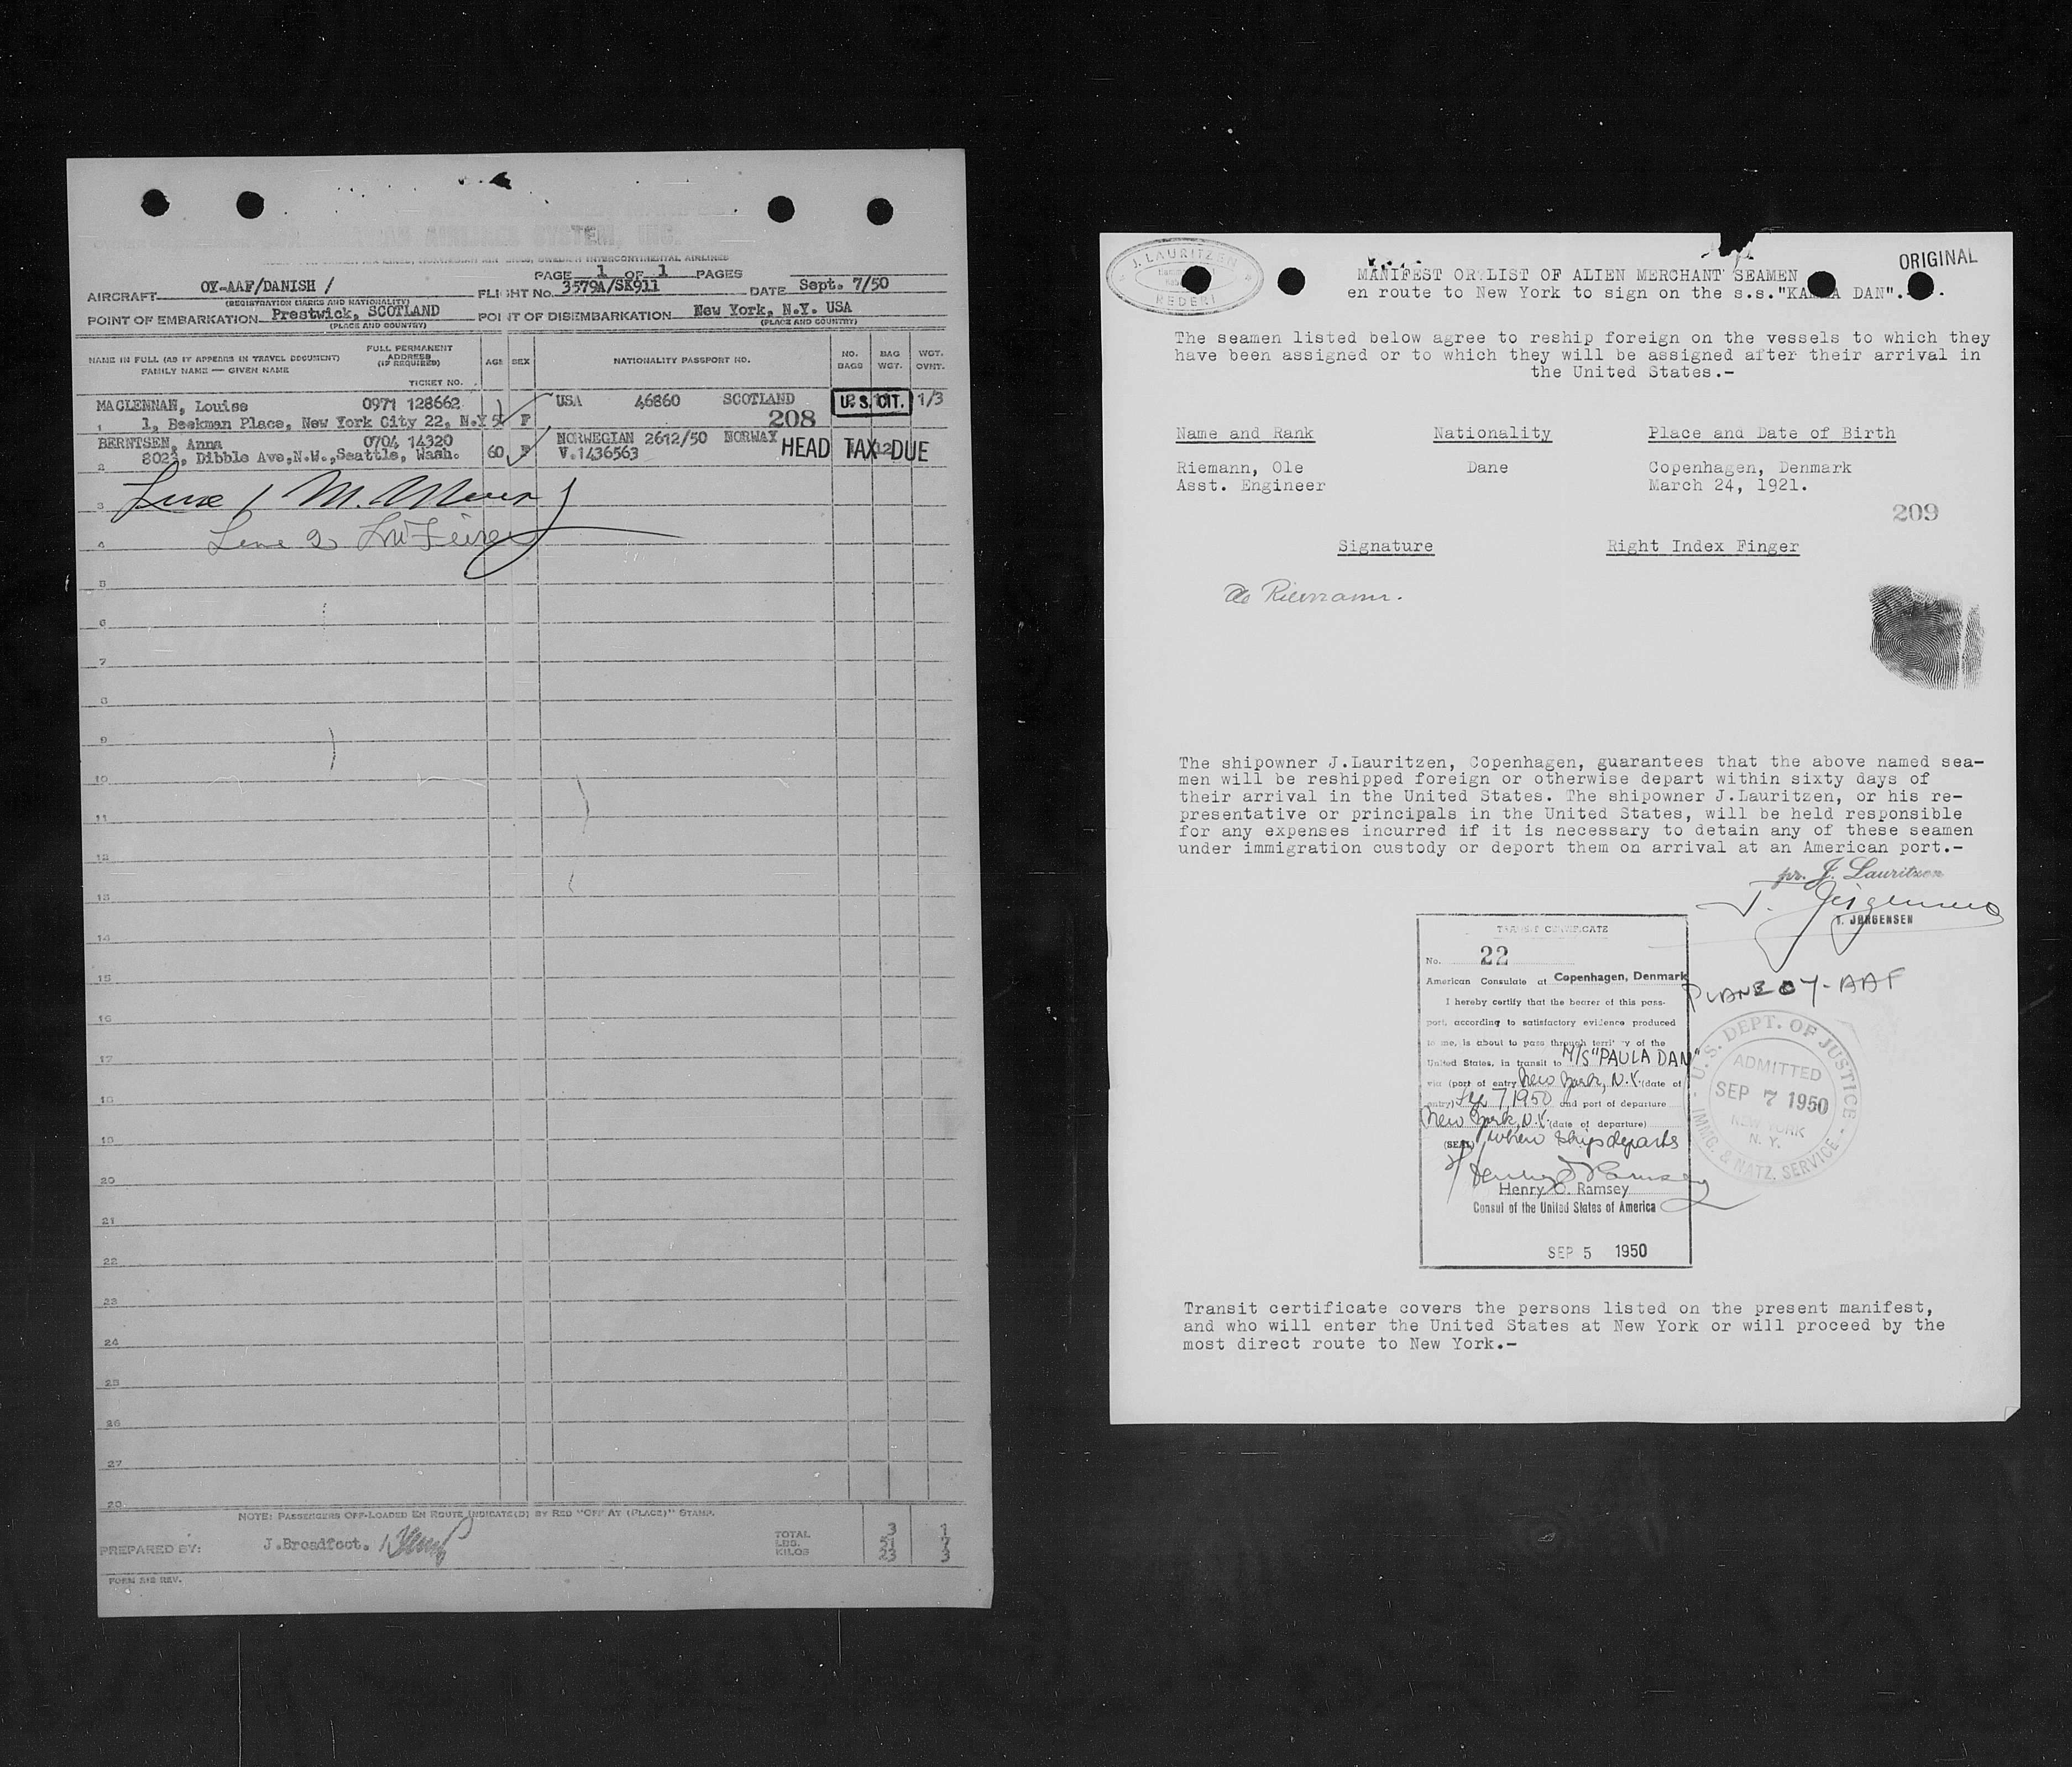 AIRLINES SYSTEM, INC.
PAGE 1 OF 1 PAGES
AIRCRAFT OY-AAF/DANISH / FLIGHT No. 3579A/SK911 DATE Sept. 7/50
(REGISTRATION MARKS AND NATIONALITY)
POINT OF EMBARKATION Prestwick, SCOTLAND POINT OF DISEMBARKATION New York, N.Y. USA
(PLACE AND COUNTRY) (PLACE AND COUNTRY)
NAME IN FULL (AS IT APPEARS IN TRAVEL DOCUMENT)
FAMILY NAME — GIVEN NAME
FULL PERMANENT
ADDRESS
(IF REQUIRED)
TICKET NO.
AGE SEX NATIONALITY PASSPORT NO.
NO. BAGS
BAG WGT.
WGT. OVNT.
MACLENNAN, Louise 0971 128662 USA 46860 SCOTLAND U.S. CIT. 1/3
1 1, Beekman Place, New York City 22, N.Y F 208
BERNTSEN, Anna 0704 14320 NORWEGIAN 2612/50 NORWAY HEAD TAX DUE
2 8023, Dibble Ave,N.W.,Seattle, Wash. 60 F V.1436563
Line 1 M.
3
Line 2
4
5
6
7
8
9
10
11
12
13
14
15
16
17
18
19
20
21
22
23
24
25
26
27
28
NOTE: PASSENGERS OFF-LOADED EN ROUTE INDICATE(D) BY RED "OFF AT (PLACE)" STAMP.
PREPARED BY: J.Broadfoot.
TOTAL 3 1
LBS. 51 7
KILOS 23 3
FORM 212 REV.
J. LAURITZEN
REDERI
ORIGINAL
MANIFEST OR LIST OF ALIEN MERCHANT SEAMEN
en route to New York to sign on the s.s. DAN".
The seamen listed below agree to reship foreign on the vessels to which they
have been assigned or to which they will be assigned after their arrival in
the United States.-
Name and Rank Nationality Place and Date of Birth
Riemann, Ole Dane Copenhagen, Denmark
Asst. Engineer March 24, 1921.
209
Signature Right Index Finger
Ole Riemann.
The shipowner J.Lauritzen, Copenhagen, guarantees that the above named sea-
men will be reshipped foreign or otherwise depart within sixty days of
their arrival in the United States. The shipowner J.Lauritzen, or his re-
presentative or principals in the United States, will be held responsible
for any expenses incurred if it is necessary to detain any of these seamen
under immigration custody or deport them on arrival at an American port.-
pr. J. Lauritzen
T. Jørgensen
T. JØRGENSEN
TRANSIT CERTIFICATE
No. 22
American Consulate at Copenhagen, Denmark
I hereby certify that the bearer of this pass-
port, according to satisfactory evidence produced
to me, is about to pass through territory of the
United States, in transit to M/S "PAULA DAN"
via (port of entry New York, N.Y. (date of
entry) Sep 7, 1950 and port of departure
New York, N.Y. (date of departure)
(SEAL) when ship departs
Henry C. Ramsey
Consul of the United States of America
SEP 5 1950
PLANE OY-AAF
U.S. DEPT. OF JUSTICE
ADMITTED
SEP 7 1950
NEW YORK
N.Y.
IMMG. & NATZ. SERVICE
Transit certificate covers the persons listed on the present manifest,
and who will enter the United States at New York or will proceed by the
most direct route to New York.-